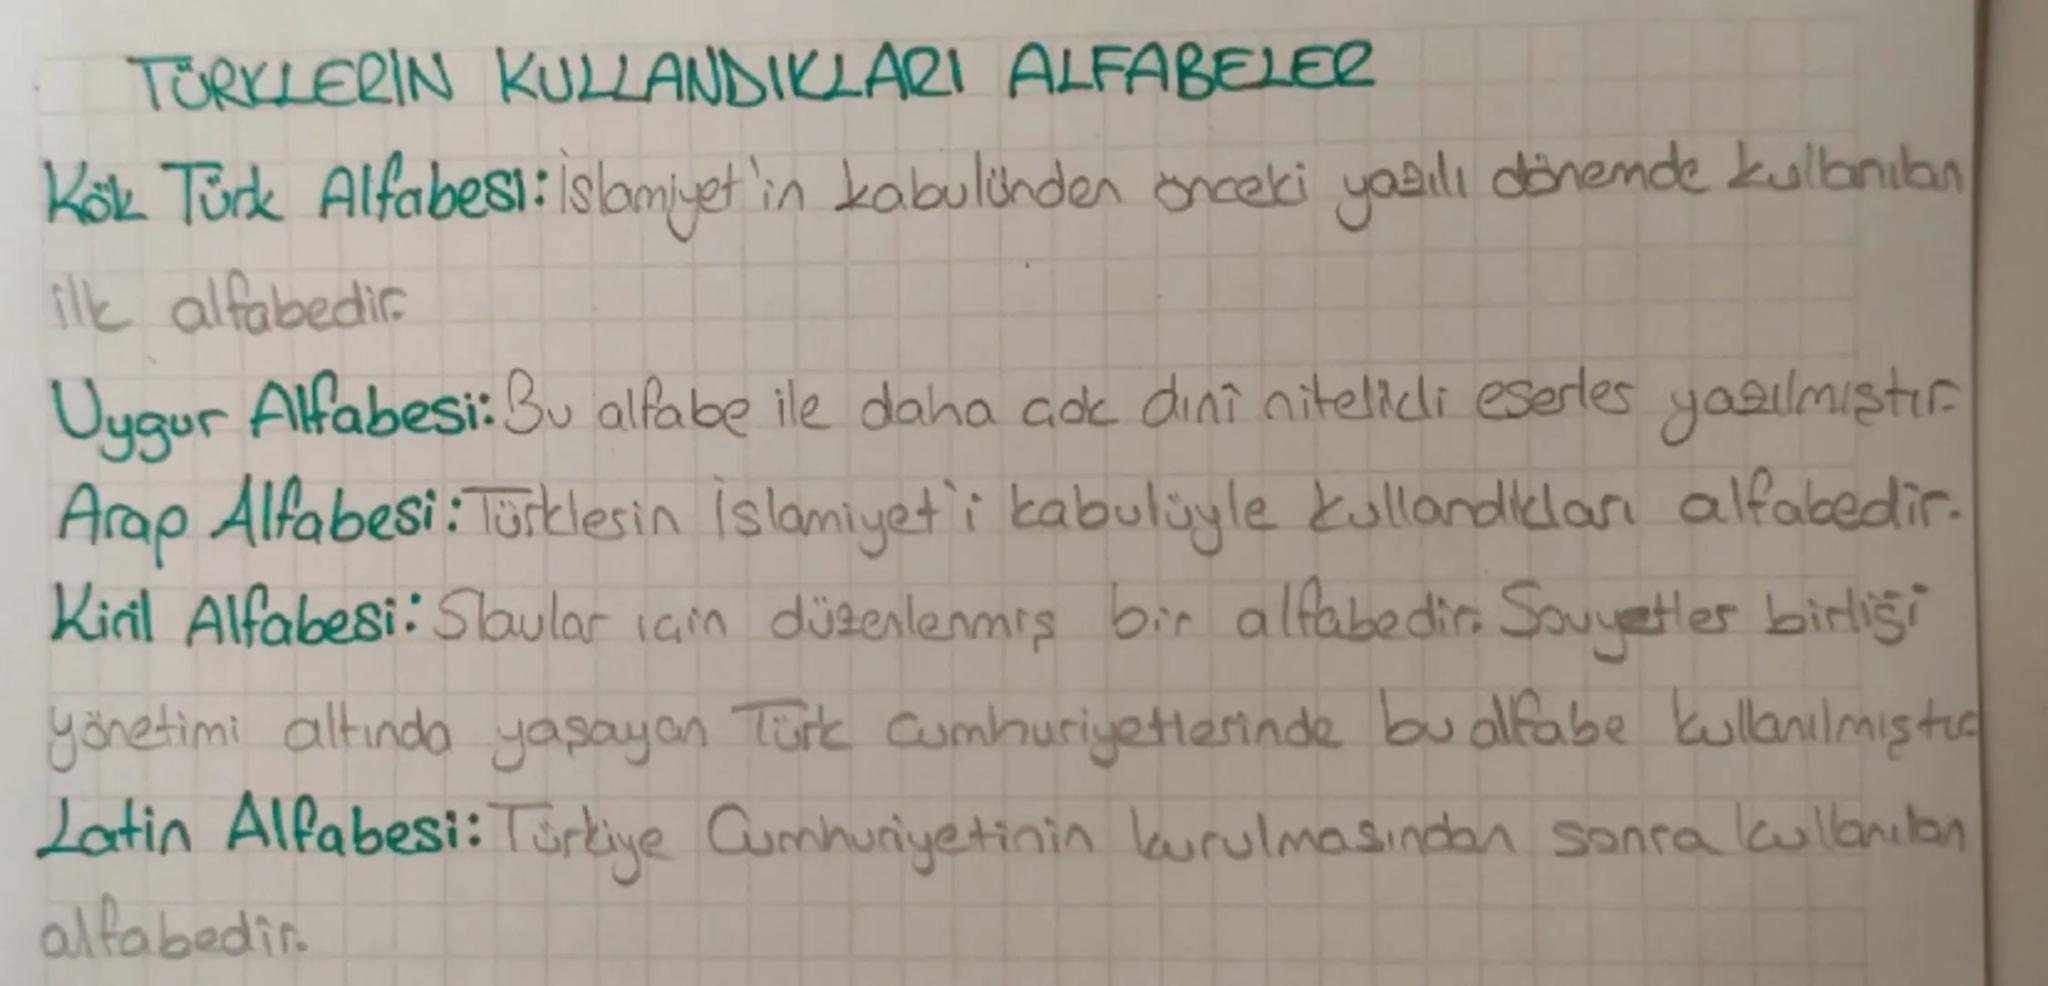 TÜRKLERİN KULLANDIKLARI ALFABELER
Kök Türk Alfabesi: İslamiyet'in kabulünden önceki yazılı dönemde kullanılan
ilk alfabedir.
Uygur Alfabesi: Bu alfabe ile daha çok dinî nitelikli eserler yazılmıştır.
Arap Alfabesi: Türklerin İslamiyet'i kabulüyle kullandıkları alfabedir.
Kiril Alfabesi: Slavlar için düzenlenmiş bir alfabedir. Sovyetler birliği
yönetimi altında yaşayan Türk Cumhuriyetlerinde bu alfabe kullanılmıştır
Latin Alfabesi: Türkiye Cumhuriyetinin kurulmasından sonra kullanılan
alfabedir.